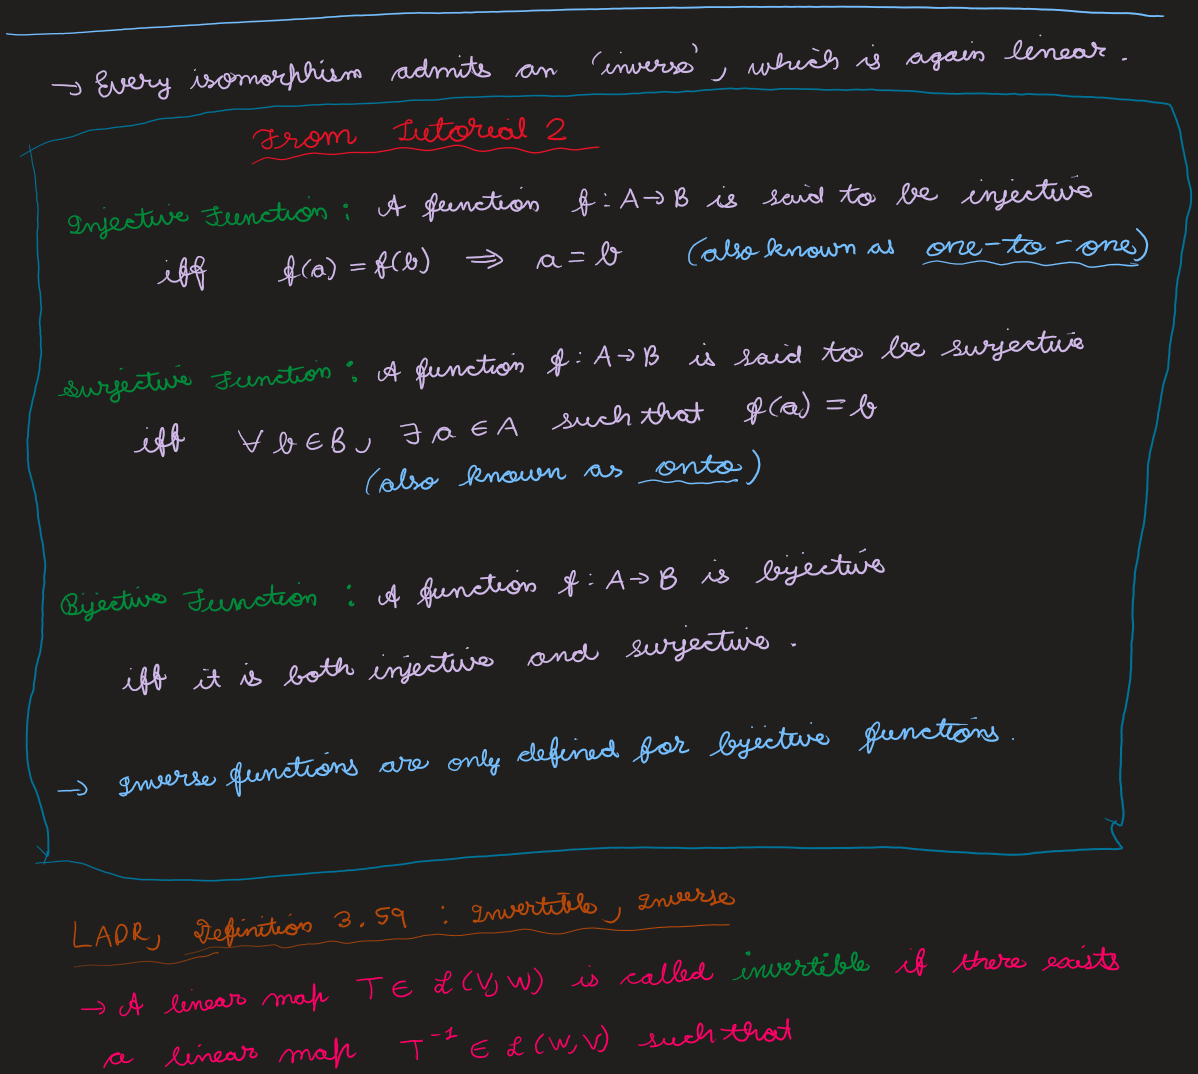 → Every isomorphism admits an 'inverse', which is again linear.
From Tutorial 2
Injective Function : A function f : A → B is said to be injective
iff f(a) = f(b) ⟹ a = b (also known as one-to-one)
Surjective Function : A function f : A → B is said to be surjective
iff ∀ b ∈ B, ∃ a ∈ A such that f(a) = b
(also known as onto)
Bijective Function : A function f : A → B is bijective
iff it is both injective and surjective.
→ Inverse functions are only defined for bijective functions.
LADR, Definition 3.59 : Invertible, Inverse
→ A linear map T ∈ ℒ(V, W) is called invertible if there exists
a linear map T⁻¹ ∈ ℒ(W, V) such that